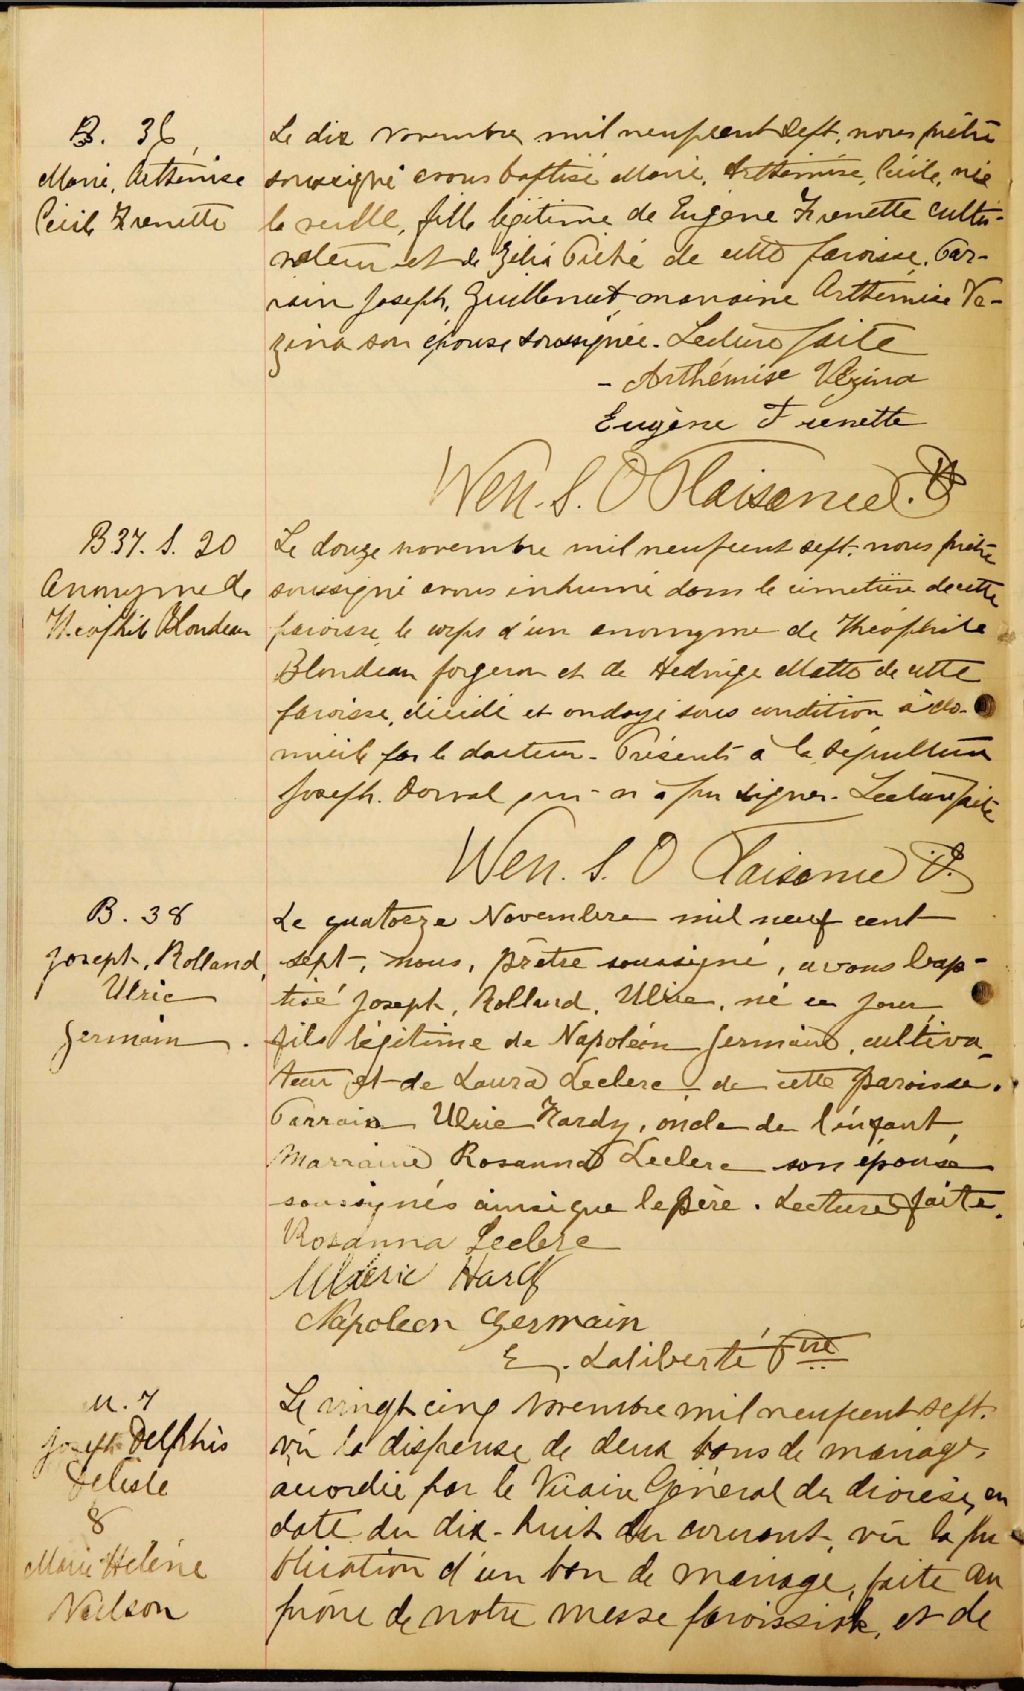 B. 36
Marie, Arthémise
Cécile Frenette
Le dix novembre mil neuf cent sept, nous prêtre
soussigné avons baptisé Marie, Arthémise, Cécile, née
la veille, fille légitime de Eugène Frenette culti-
vateur et de Zélia Piché de cette paroisse. Par-
rain Joseph, Guillemet marraine Arthémise Vé-
zina son épouse soussignée. Lecture faite
- Arthémise Vézina
Eugène Frenette
Wen. S. O Plaisance. P
B 37. S. 20
Anonyme de
Théophile Blondeau
Le douze novembre mil neuf cent sept. nous prêtre
soussigné avons inhumé dans le cimetière de cette
paroisse, le corps d'un anonyme de Théophile
Blondeau forgeron et de Hedwige Matte de cette
paroisse, décédé et ondoyé sous condition à do-
micile par le docteur. Présent à la sépulture
Joseph. Dorval qui n'a pu signer. Lecture faite
Wen. S. O Plaisance P.
B. 38
Joseph, Rolland,
Ulric
Germain.
Le quatorze Novembre mil neuf cent
sept, nous, prêtre soussigné, avons bap-
tisé Joseph, Rolland, Ulric, né ce jour,
fils légitime de Napoléon Germain, cultiva-
teur et de Laura Leclerc de cette paroisse.
Parrain Ulric Hardy, oncle de l'enfant,
Marraine Rosanna Leclerc son épouse
soussignés ainsi que le père. Lecture faite.
Rosanna Leclerc
Hardy
Napoleon Germain
E. Laliberté Ptre
M. 7
Joseph Delphis
Delisle
&
Marie Helène
Neilson
Le vingt cinq novembre mil neuf cent sept.
vu la dispense de deux bans de mariage
accordée par le Vicaire Général du diocèse, en
date du dix-huit du courant, vu la pu
blication d'un ban de mariage, faite au
prône de notre messe paroissiale, et de